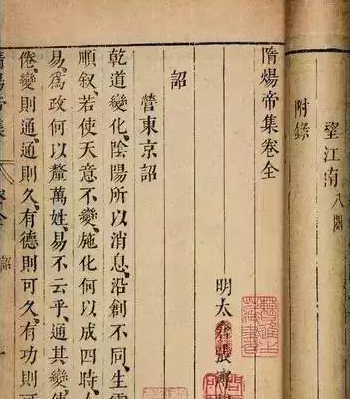 望江南八闋
附錄
隋煬帝集卷全
明太倉張溥
詔
營東京詔
乾道變化、陰陽所以消息、沿創不同、生靈
順叙、若使天意不變、施化何以成四時、人
易、爲政何以釐萬姓、易不云乎、通其變、使
倦、變則通、通則久、有德則可久、有功則可
隋煬帝集 卷全 詔